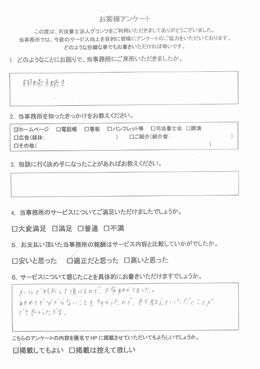 お客様アンケート
この度は、司法書士法人グランツをご利用いただきましてありがとうございました。
当事務所では、今後のサービス向上を目的に皆様にアンケートのご協力をいただいております。
どのような些細な事でもお書きいただければ幸いです。
1. どのようなことにお困りで、当事務所にご来所いただきましたか。
相続手続き
2. 当事務所を知ったきっかけをお教えください。
☑ホームページ □電話帳 □看板 □パンフレット等 □司法書士会 □講演
□広告(媒体: ) □ご紹介(紹介者: )
□その他( )
3. 相談に行く決め手になったことがあればお教えください。
4. 当事務所のサービスについてご満足いただけましたでしょうか。
□大変満足 ☑満足 □普通 □不満
5. お支払い頂いた当事務所の報酬はサービス内容と比較していかがでしたか。
□安いと思った ☑適正だと思った □高いと思った
6. サービスについて感じたことを具体的にお書きいただけますでしょうか。
メールで対応して頂けるので、大変助かりました。
初めてで分からないことも多かったので、色々教えていただくことが
できよかったです。
こちらのアンケートの内容を匿名でHPに掲載させていただいてもよろしいでしょうか。
☑掲載してもよい □掲載は控えて欲しい